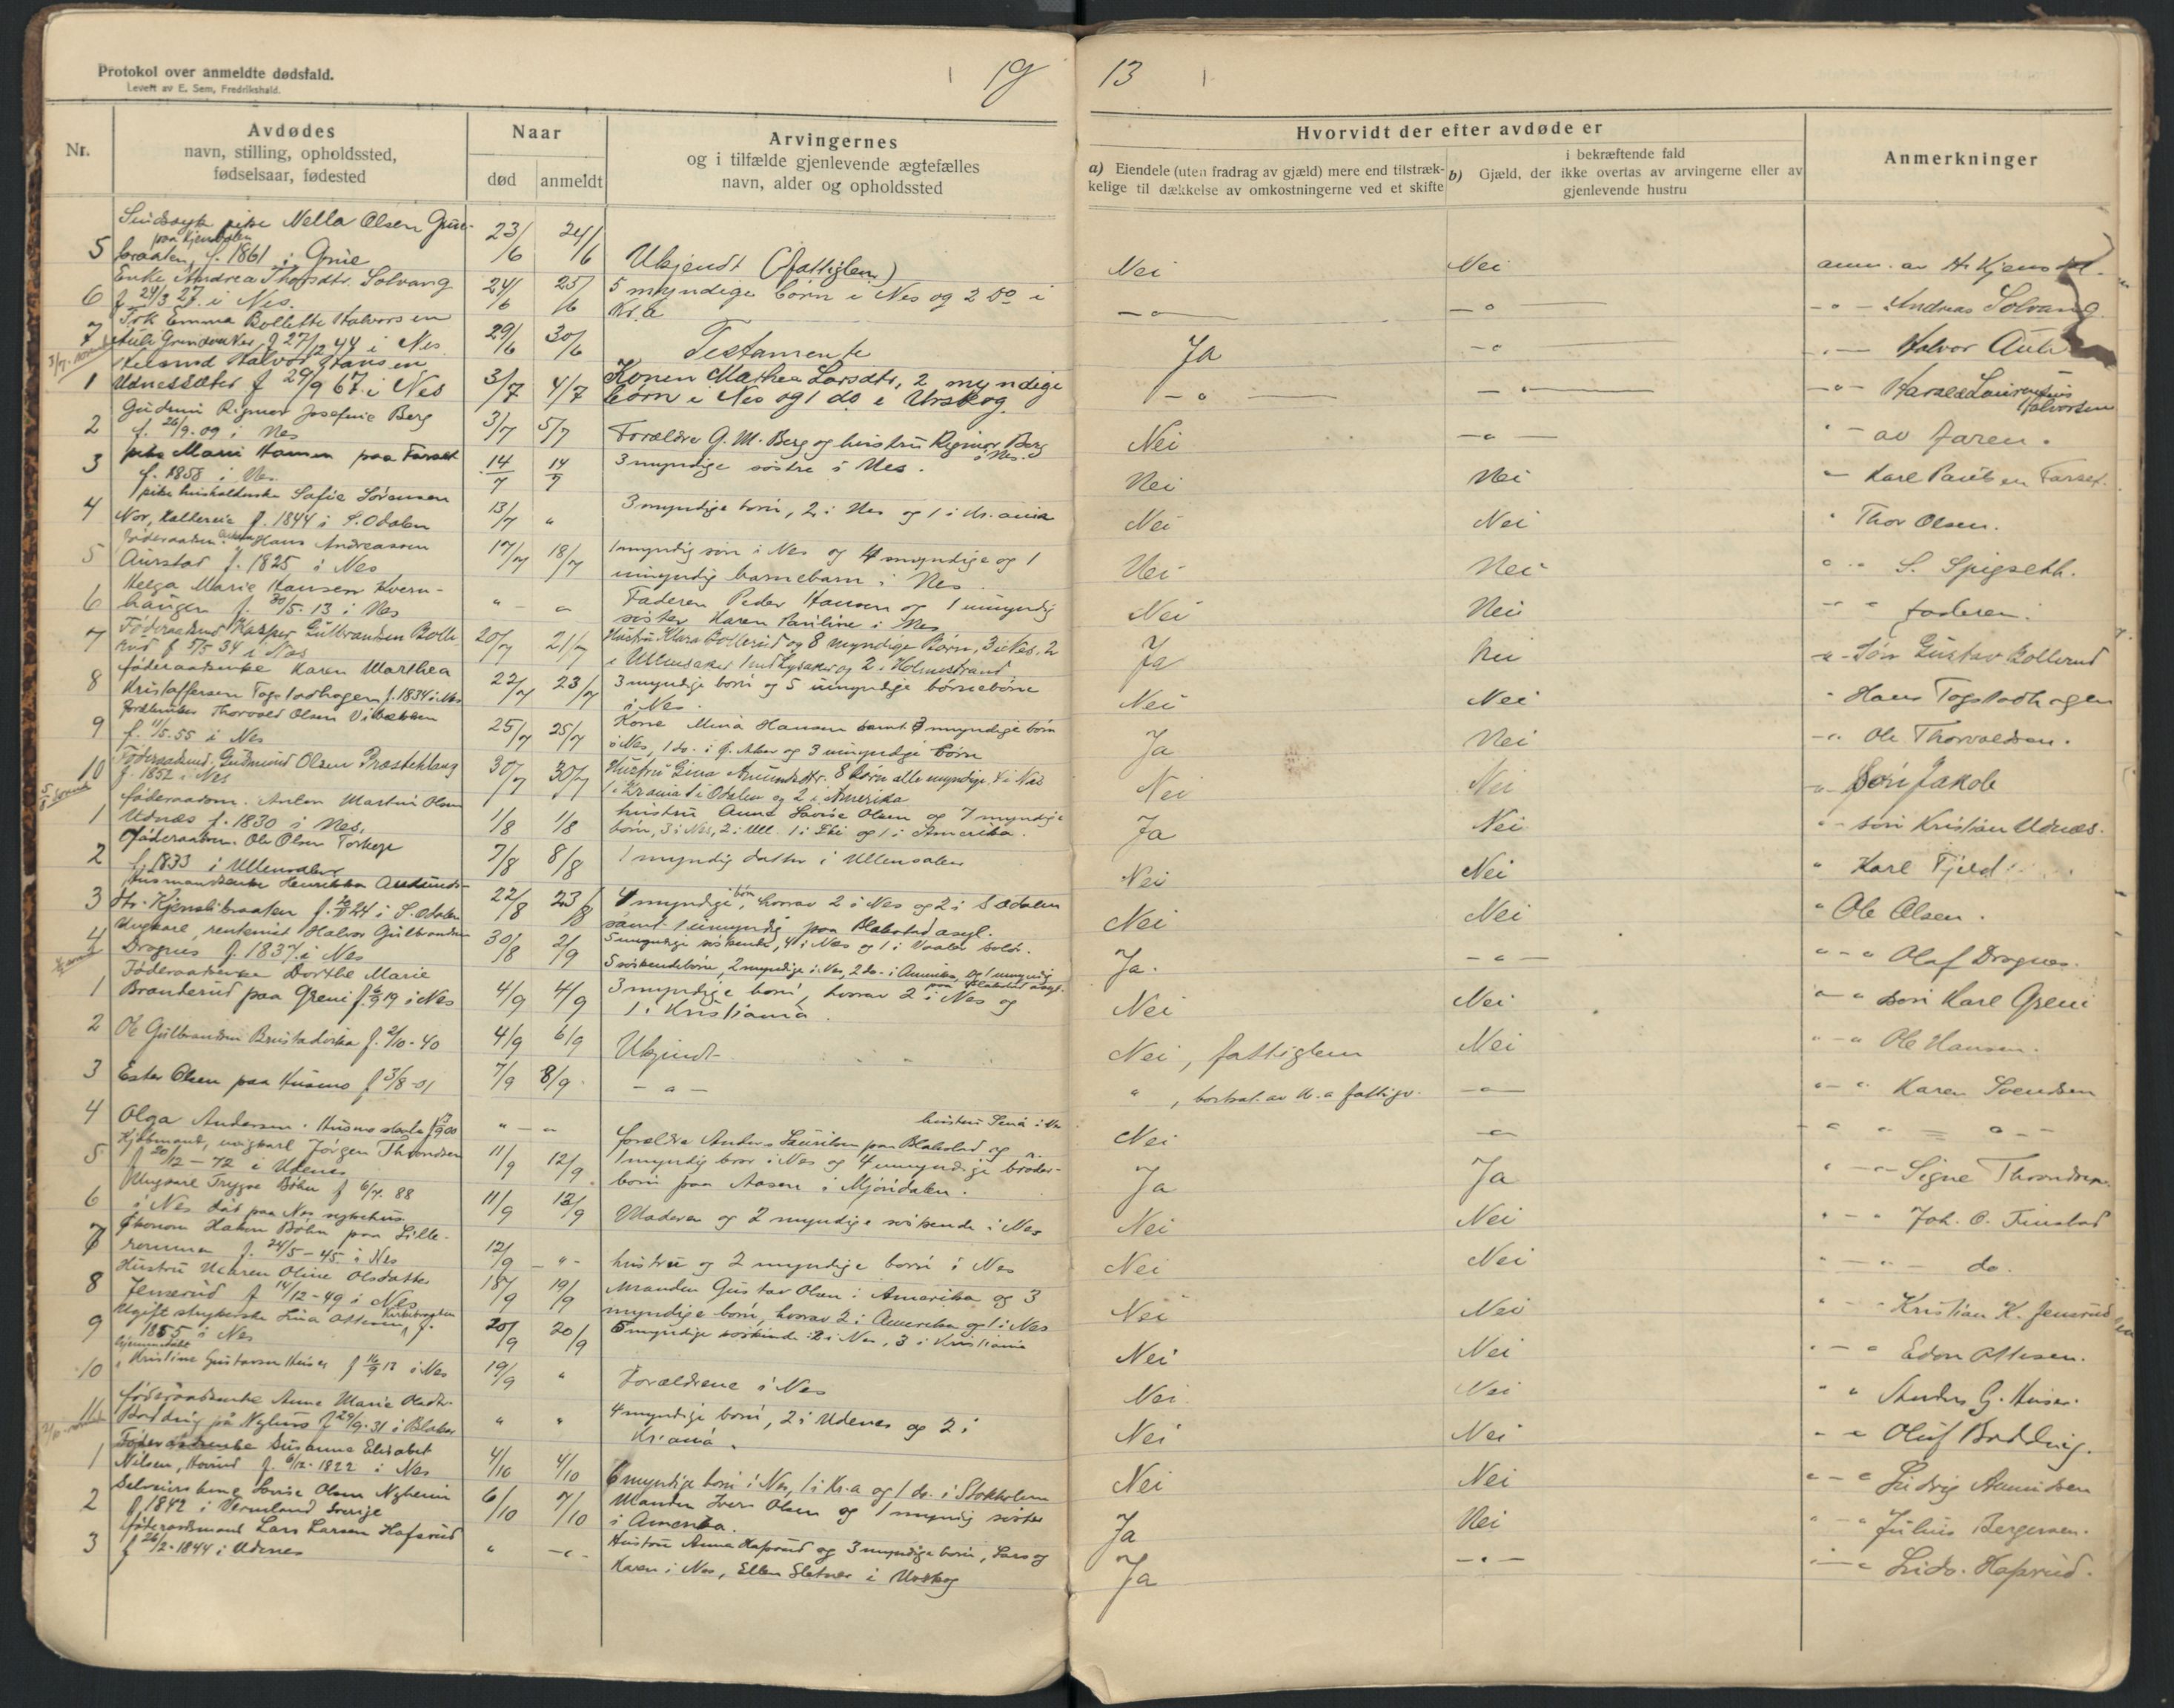 Protokol over anmeldte dødsfald.
Levert av E. Sem, Fredrikshald.
19
13
Nr.
Avdødes
navn, stilling, opholdssted,
fødselsaar, fødested
Naar
død
anmeldt
Arvingernes
og i tilfælde gjenlevende ægtefælles
navn, alder og opholdssted
Hvorvidt der efter avdøde er
a) Eiendele (uten fradrag av gjæld) mere end tilstræk-
kelige til dækkelse av omkostningerne ved et skifte
i bekræftende fald
b) Gjæld, der ikke overtas av arvingerne eller av
gjenlevende hustru
Anmerkninger
Sindssyk pike Nella Olsen
5 braaten, f. 1861 i Grue 23/6 24/6 Ukjendt (fattiglem) Nei Nei anm. av H. Kjensli
Enke Andrea Thorsdtr. Solvang
6 f 24/3 27. i Nes. 24/6 25/6 5 myndige børn i Nes og 2 do i Kr.a -"- -"- -"- Andreas Solvang
Frk Emma Bollette Halvorsen
7 Auli f 27/12 44 i Nes 29/6 30/6 Testamente Ja -"- -"- Halvor Auli
Halvor Hansen
1 Udnessæter f 29/9 67 i Nes 3/7 4/7 Konen Mathea Larsdtr, 2 myndige
børn i Nes og 1 do i Urskog -"- -"- -"- Harald Laurentius Halvorsen
Gudrun Rigmor Josefine Berg
2 f. 26/9. 09 i Nes 3/7 5/7 Forældre G. M. Berg og hustru Rigmor Berg i Nes. Nei -"- -"- av faren.
pike Marie Hansen paa Farset
3 f. 1858 i Nes 14/7 14/7 3 myndige søstre i Nes. Nei Nei " Karl Paulsen Farset.
pike husholderske Sofie Sørensen
4 Nor, f. 1844 i S. Odalen 13/7 " 3 myndige børn, 2 i Nes og 1 i Kr.ania Nei Nei " Thor Olsen.
Hans Andreassen
5 Aurstad f. 1825 i Nes 17/7 18/7 1 myndig søn i Nes og 4 myndige og 1
umyndig barnebarn i Nes Nei Nei " S. Spigseth.
Helga Marie Hansen Kvern-
6 haugen f. 30/5. 13 i Nes " - " Faderen Peder Hansen og 1 umyndig
søster Karen Pauline i Nes Nei Nei " " faderen.
Føderaadsmd Kasper Gulbrandsen Bolle-
7 rud f 5/5 34 i Nes 20/7 21/7 Hustru Klara Bollerud og 8 myndige Børn, 3 i Nes. 2
i Ullensaker 1 ved Lysaker og 2 i Holmestrand Ja Nei " Søn Gustav Bollerud
føderaadsenke Karen Marthea
8 Kristoffersen Togstadhagen f. 1834 i Nes 22/7 23/7 3 myndige børn og 5 umyndige børnebørn
i Nes. Nei Nei " Hans Togstadhagen
Thorvald Olsen
9 f. 11/5. 55 i Nes 25/7 25/7 Kone Mina Hansen samt 3 myndige børn
i Nes, 1 do. i Ø. Aker og 3 umyndige børn Ja Nei -"- Ole Thorvaldsen.
Føderaadsmd. Gudmund Olsen Præsteklang
10 f. 1852 i Nes 30/7 30/7 Hustru Gina Amundsdtr. 8 børn alle myndige
i Odalen og 2 i Amerika Nei Nei " Søn Jakob
føderaadsm. Anton Martin Olsen
1 Udnæs f. 1830 i Nes, 1/8 1/8 hustru Anna Lovise Olsen og 7 myndige
børn, 3 i Nes, 2 i Ull. 1 i og 1 i Amerika. Ja Nei " søn Kristian Udnæs.
føderaadsm. Ole Olsen
2 f. 1833 i Ullensaker 7/8 8/8 1 myndig datter i Ullensaker Nei Nei " Karl Fjeld
Husmandsenke Henrikka Amunds-
3 dtr. Kjenslibraaten f. 24 i S. Odalen 22/8 23/8 4 myndige børn, hvorav 2 i Nes og 2 i S. Odalen
samt 1 umyndig paa Blakstad asyl. Nei Nei " Ole Olsen.
Ungkarl, rentenist Halvor Gulbrandsen
4 Dragnes f. 1837. i Nes 30/8 2/9 5 myndige søskende, 4 i Nes og 1 i Vaaler
5 søskendebørn, 2 myndige i Nes, 2 do. i Amerika, og 1 umyndig paa Blakstad asyl. Ja. -"- " - " Olaf Dragnes.
Føderaadsenke Dorthe Marie
1 Branderud paa Greni f. 19 i Nes 4/9 4/9 3 myndige børn, hvorav 2 i Nes og
1 i Kristiania. Nei Nei " - " søn Karl Greni
2 Ole Gulbrandsen f. 2/10 - 40 4/9 6/9 Ukjendt - Nei, fattiglem Nei " - " Ole Hansen.
3 Ester Olsen paa Husmo f 3/8 - 01 7/9 8/9. - " - " , bortsat av Kr.a fattigv. -"- " - " Karen Svendsen
4 Olga Andersen. Husmo " - " forældre Anders Lauritsen paa Blakstad og hustru Nei -"- " " = " - -
Kjøbmand, ungkarl Jørgen Throndsen
5 f 20/12 - 72 i Udenes 11/9 12/9 1 myndig bror i Nes og 4 umyndige broder-
børn paa Aasen i Mjøndalen. Ja Ja " - " Signe Throndsen.
Ungkarl Trygve Bøhn f 6/7. 88
6 i Nes død paa Nes sykehus 11/9 12/9 Moderen og 2 myndige søskende i Nes Nei Nei " - " Joh. O. Finstad
Økonom Hakon Bøhn paa Lille-
7 rommen f. 24/5 - 45. i Nes 12/9 - " - hustru og 2 myndige børn i Nes Nei Nei " - " - do.
Hustru Maren Oline Olsdatter
8 Jenserud f 14/12 - 49 i Nes 18/9 19/9 Manden Gustav Olsen i Amerika og 3
myndige børn, hvorav 2 i Amerika og 1 i Nes Nei Nei " - " Kristian K. Jenserud
Ugift Lina Ottesen
9 1855 i Nes 20/9 20/9 5 myndige søskende 2 i Nes, 3 i Kristiania Nei Nei " - " Edon Ottesen.
10 Kristine Gustavsen Huser f 16/9 13 i Nes 19/9 " Forældrene i Nes Nei Nei " " Anders G. Huser.
føderaadsenke Anne Marie Olsdtr.
11 Bordding på Nyhus f 29/9. 31 i Blaker " " 4 myndige børn, 2 i Udenes og 2 i
Kr.ania. Nei Nei " " Oluf Bordding.
Føderaadsenke Susanne Elisabet
1 Nilsen, f. 6/12. 1822 i Nes 4/10 4/10 6 myndige børn i Nes, 1 i Kr.a og 1 do. i Stokholm Nei Nei " - " Ludvig Amundsen
Lovise Olsen Nyheim
2 f 1842 i Vermland Sverige 6/10 7/10 Manden Iver Olsen og 1 myndig søster
i Amerika. Ja Nei " - " Julius Bergersen.
føderaadsmand Lars Larsen Hafsrud
3 f 26/2. 1844 i Udenes " - " - Hustru Anna Hafsrud og 3 myndige børn, Lars og
Karen i Nes, Ellen Sletner i Urskog Ja -"- " - " Ludv. Hafsrud.